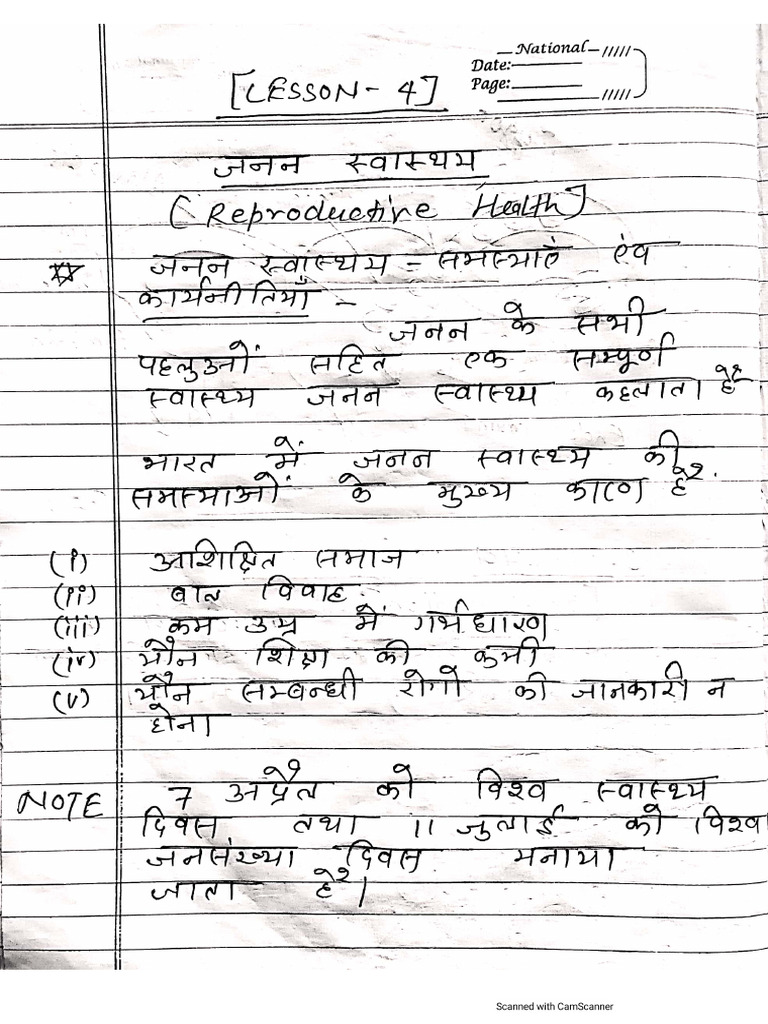 National
Date:
Page:
[LESSON - 4]
जनन स्वास्थय
(Reproductive Health)
जनन स्वास्थय - समस्याएं एंव
कार्यनीतियाँ -
जनन के सभी
पहलुओं सहित एक सम्पूर्ण
स्वास्थ्य जनन स्वास्थ्य कहलाता है
भारत में जनन स्वास्थ्य की
समस्याओं के मुख्य कारण है.
(i) अशिक्षित समाज
(ii) बाल विवाह
(iii) कम उम्र में गर्भधारण
(iv) यौन शिक्षा की कमी
(v) यौन सम्बन्धी रोगो की जानकारी न
होना
NOTE 7 अप्रैल को विश्व स्वास्थ्य
दिवस तथा 11 जुलाई को विश्व
जनसंख्या दिवस मनाया
जाता है।
Scanned with CamScanner